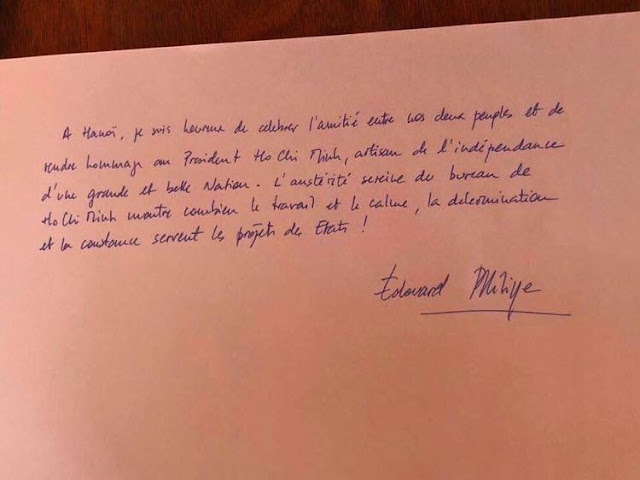 A Hanoï, je suis heureux de célébrer l'amitié entre nos deux peuples et de
rendre hommage au Président Ho Chi Minh, artisan de l'indépendance
d'une grande et belle Nation. L'austérité sereine du bureau de
Ho Chi Minh montre combien le travail et le calme, la détermination
et la constance servent les projets des Etats !
Edouard Philippe